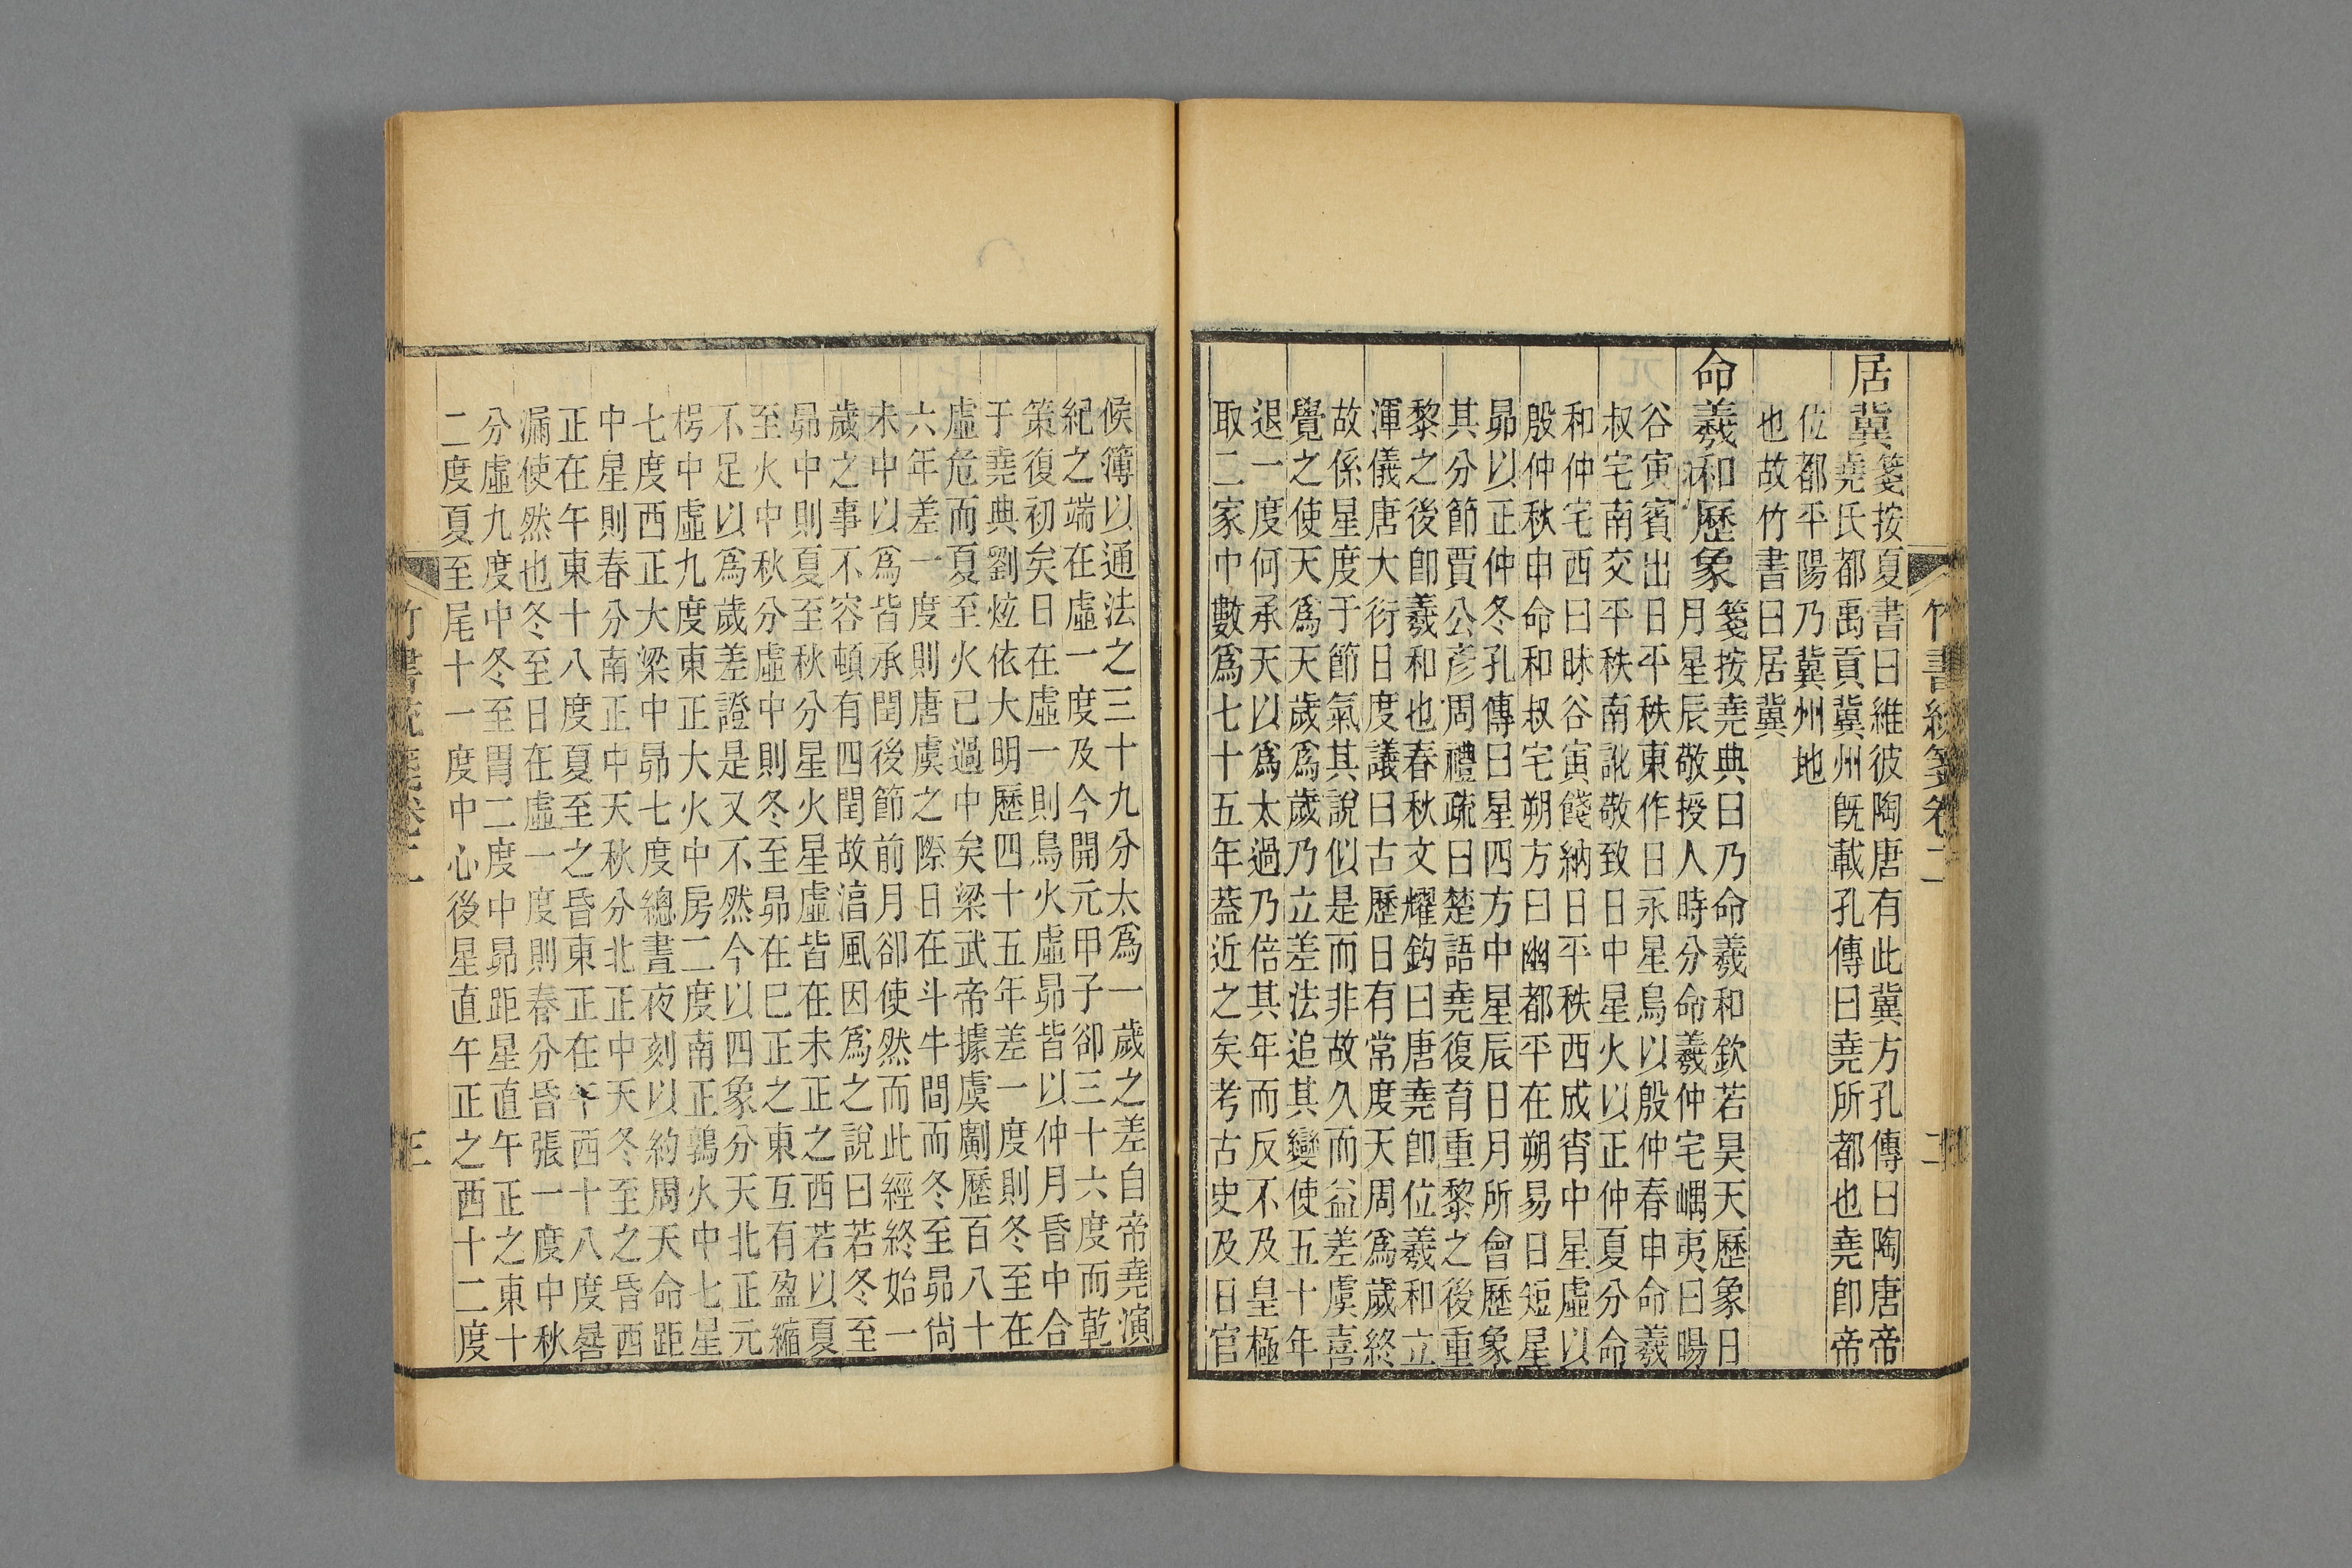 居冀
箋按夏書曰維彼陶唐有此冀方孔傳曰陶唐帝
堯氏都禹貢冀州既載孔傳曰堯所都也堯卽帝
位都平陽乃冀州地
也故竹書曰居冀
命羲和歷象
箋按堯典曰乃命羲和欽若昊天歷象日
月星辰敬授人時分命羲仲宅嵎夷曰暘
谷寅賓出日平秩東作日永星鳥以殷仲春申命羲
叔宅南交平秩南訛敬致日中星火以正仲夏分命
和仲宅西曰昧谷寅餞納日平秩西成宵中星虛以
殷仲秋申命和叔宅朔方曰幽都平在朔易日短星
昴以正仲冬孔傳曰星四方中星辰日月所會歷象
其分節賈公彥周禮疏曰楚語堯復育重黎之後重
黎之後卽羲和也春秋文耀鈎曰唐堯卽位羲和立
渾儀唐大衍日度議曰古歷日有常度天周爲歲終
故係星度于節氣其說似是而非故久而益差虞喜
覺之使天爲天歲爲歲乃立差法追其變使五十年
退一度何承天以爲太過乃倍其年而反不及皇極
取二家中數爲七十五年葢近之矣考古史及日官
竹書統箋卷二
二
候簿以通法之三十九分太爲一歲之差自帝堯演
紀之端在虛一度及今開元甲子卻三十六度而乾
策復初矣日在虛一則鳥火虛昴皆以仲月昏中合
于堯典劉炫依大明歷四十五年差一度則冬至在
虛危而夏至火已過中矣梁武帝據虞𠠎歷百八十
六年差一度則唐虞之際日在斗牛間而冬至昴尙
未中以爲皆承閏後節前月卻使然而此經終始一
歲之事不容頓有四閏故湻風因爲之說曰若冬至
昴中則夏至秋分星火星虛皆在未正之西若以夏
至火中秋分虛中則冬至昴在巳正之東互有盈縮
不足以爲歲差證是又不然今以四象分天北正元
枵中虛九度東正大火中房二度南正鶉火中七星
七度西正大梁中昴七度總晝夜刻以約周天命距
中星則春分南正中天秋分北正中天冬至之昏西
正在午東十八度夏至之昏東正在午西十八度晷
漏使然也冬至日在虛一度則春分昏張一度中秋
分虛九度中冬至胃二度中昴距星直午正之東十
二度夏至尾十一度中心後星直午正之西十二度
竹書統箋卷二
三